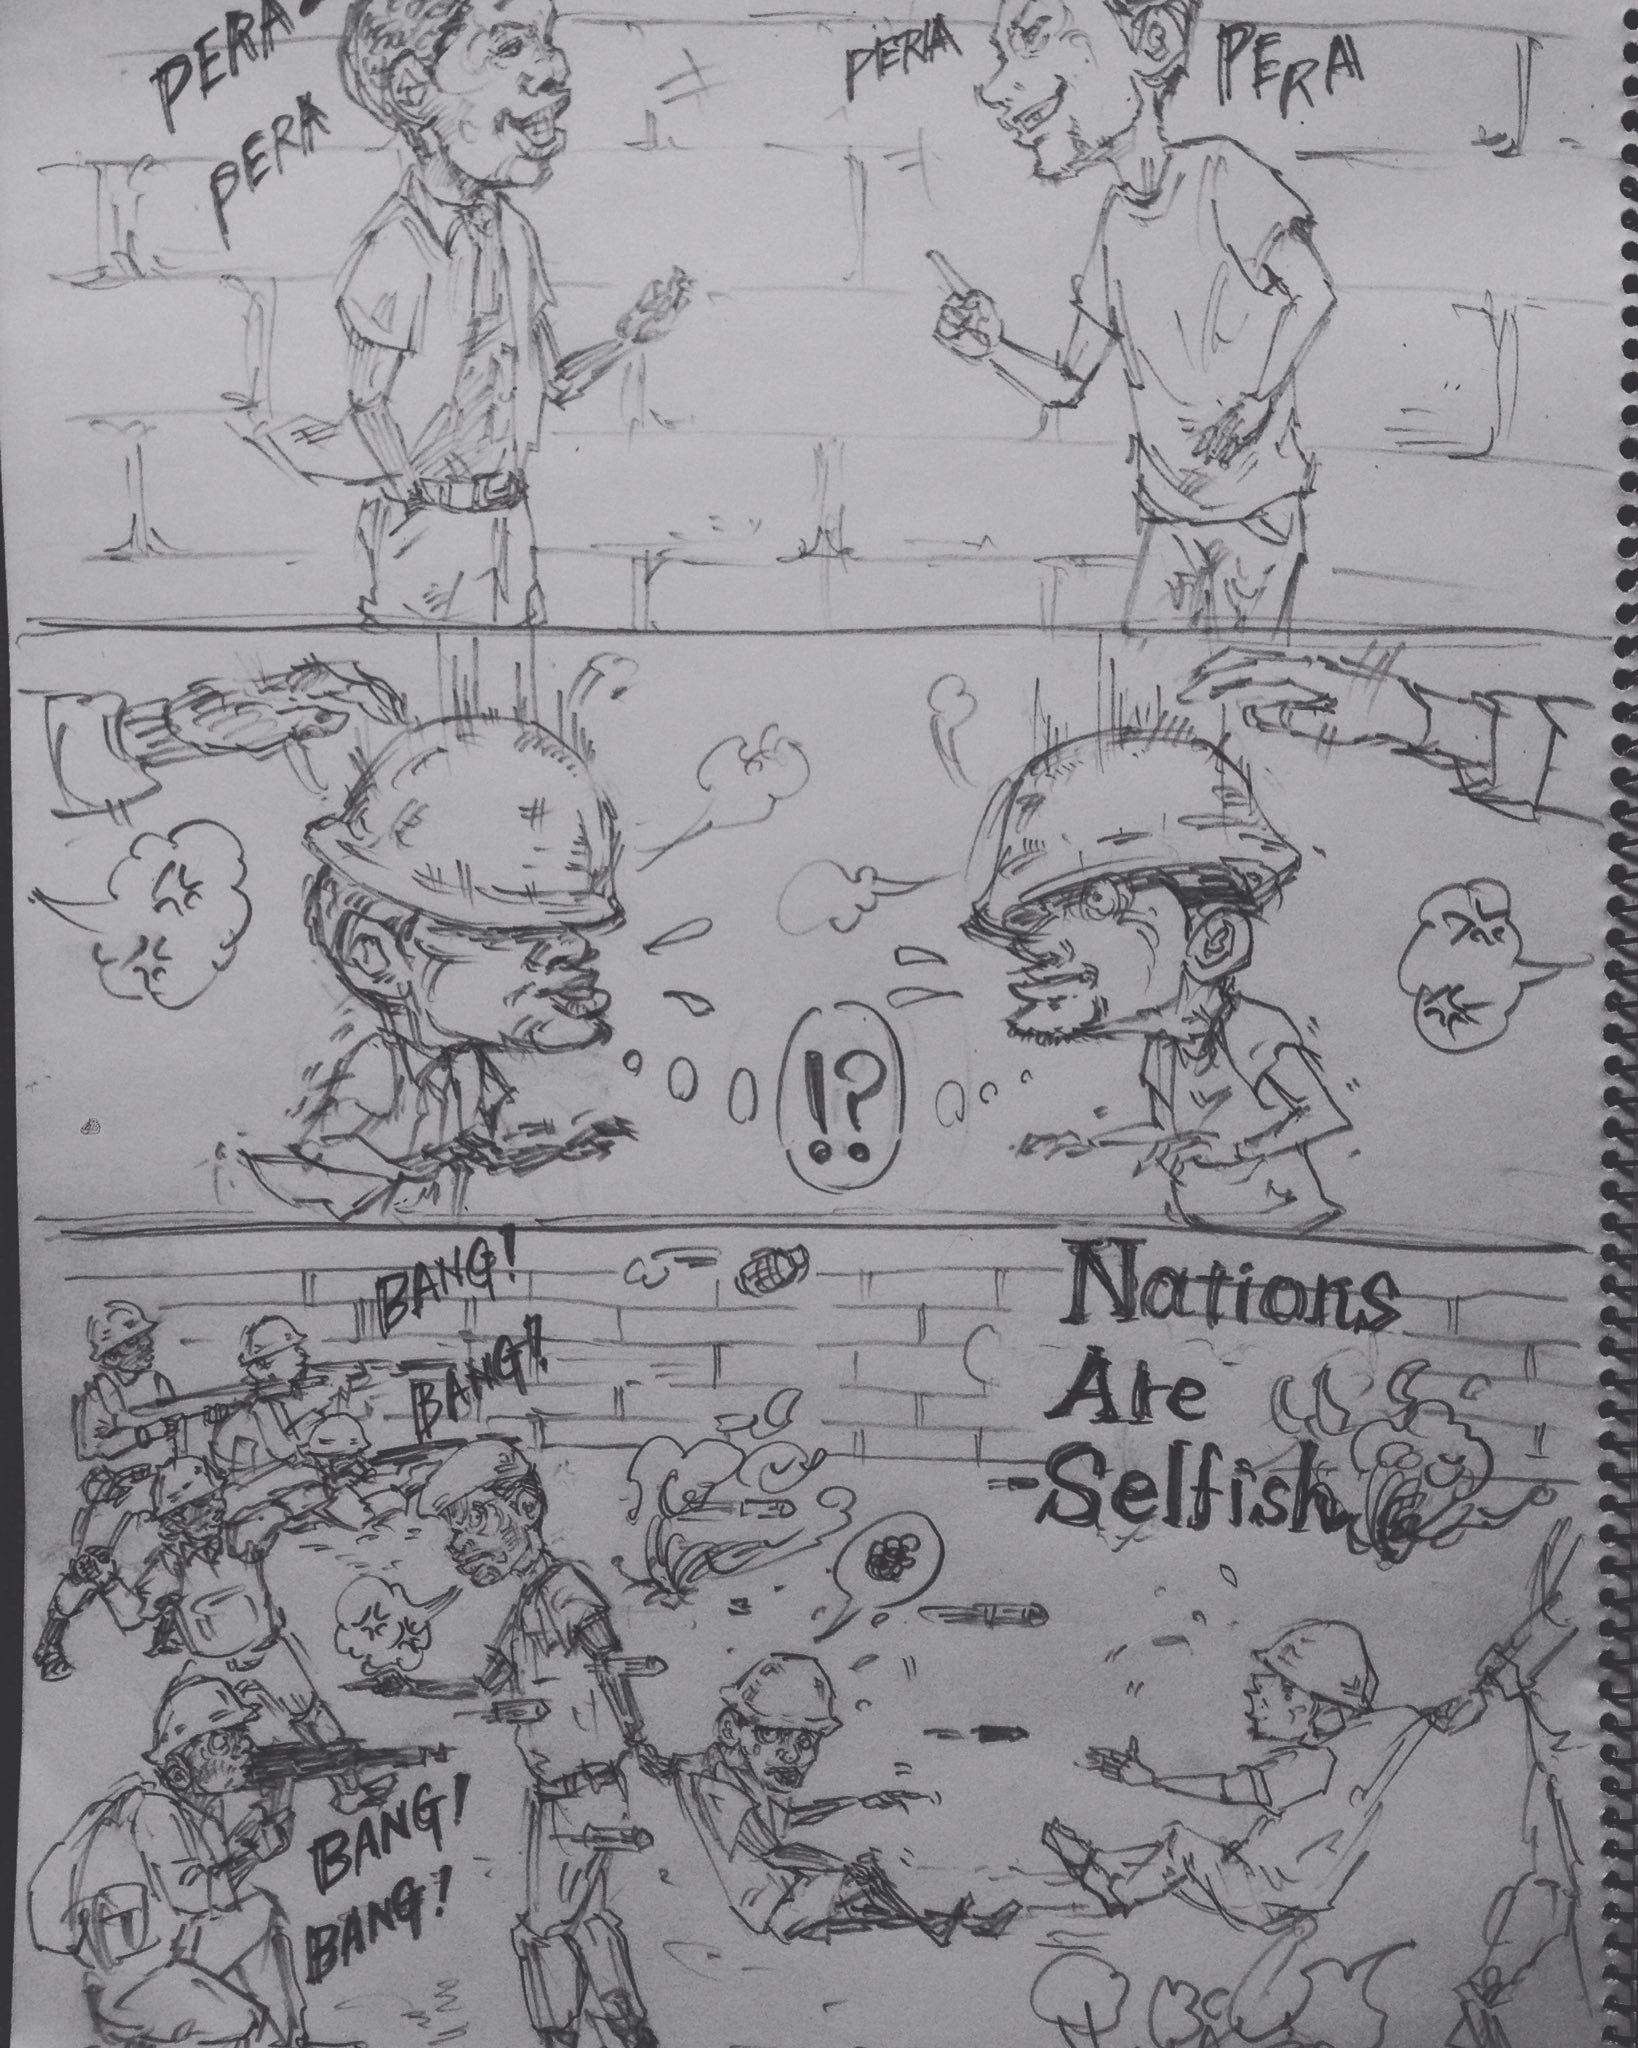 PERA
PERA
PERA
PERA
!?
BANG!
BANG!
Nations
Are
Selfish
BANG!
BANG!